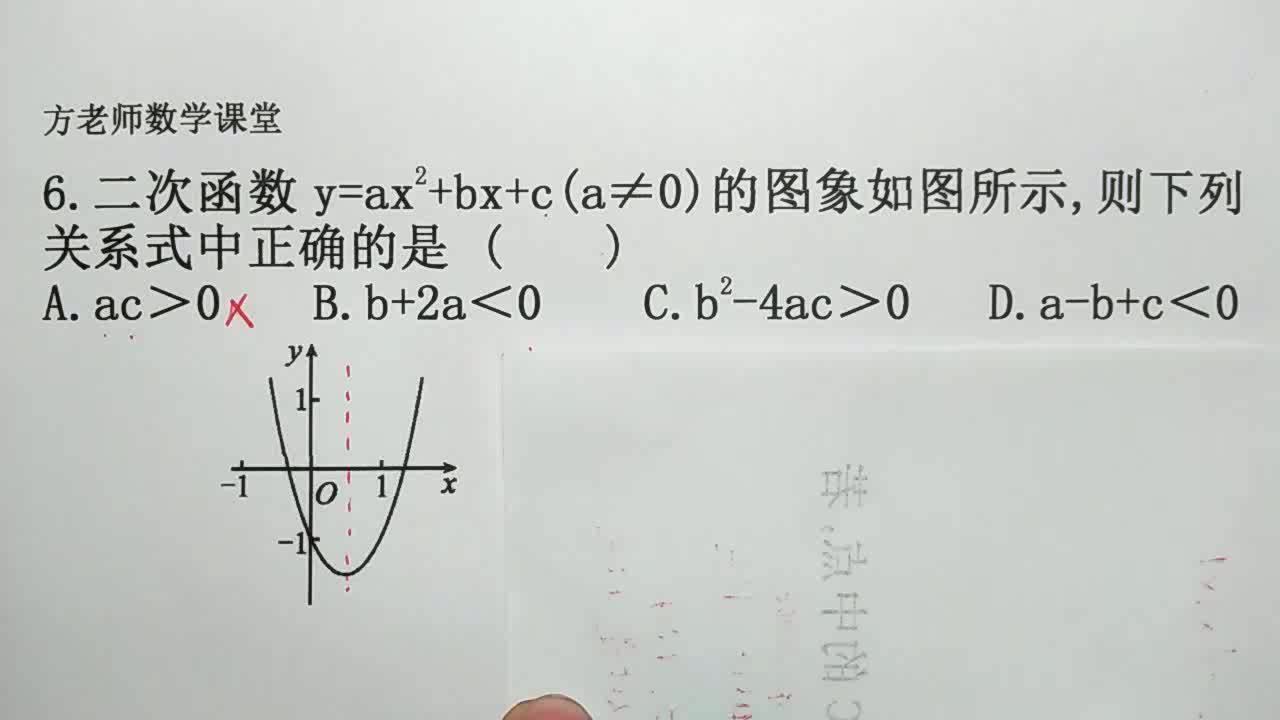 方老师数学课堂
6.二次函数 y=ax²+bx+c(a≠0)的图象如图所示,则下列
关系式中正确的是 (      )
A.ac>0× B.b+2a<0 C.b²-4ac>0 D.a-b+c<0
y
1
-1 O 1 x
-1
C的中点,若